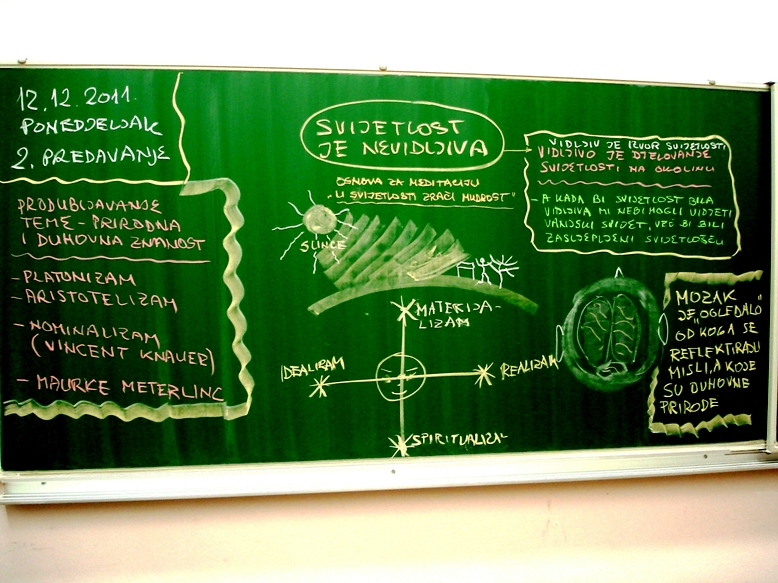 12.12.2011.
PONEDJELJAK
2. PREDAVANJE
PRODUBLJAVANJE
TEME - PRIRODNA
I DUHOVNA ZNANOST
- PLATONIZAM
- ARISTOTELIZAM
- NOMINALIZAM
(VINCENT KNAUER)
- MAURICE METERLINC
SVIJETLOST
JE NEVIDLJIVA
OSNOVA ZA MEDITACIJU
"U SVIJETLOSTI ZRAČI MUDROST"
SUNCE
MATERIJA-
LIZAM
IDEALIZAM
REALIZAM
SPIRITUALIZAM
VIDLJIV JE IZVOR SVIJETLOSTI
VIDLJIVO JE DJELOVANJE
SVIJETLOSTI NA OKOLINU
- A KADA BI SVIJETLOST BILA
VIDLJIVA MI NEBI MOGLI VIDJETI
VANJSKI SVIJET, VEĆ BI BILI
ZASLJEPLJENI SVIJETLOŠĆU
MOZAK
JE "OGLEDALO"
OD KOGA SE
REFLEKTIRAJU
MISLI, A KOJE
SU DUHOVNE
PRIRODE